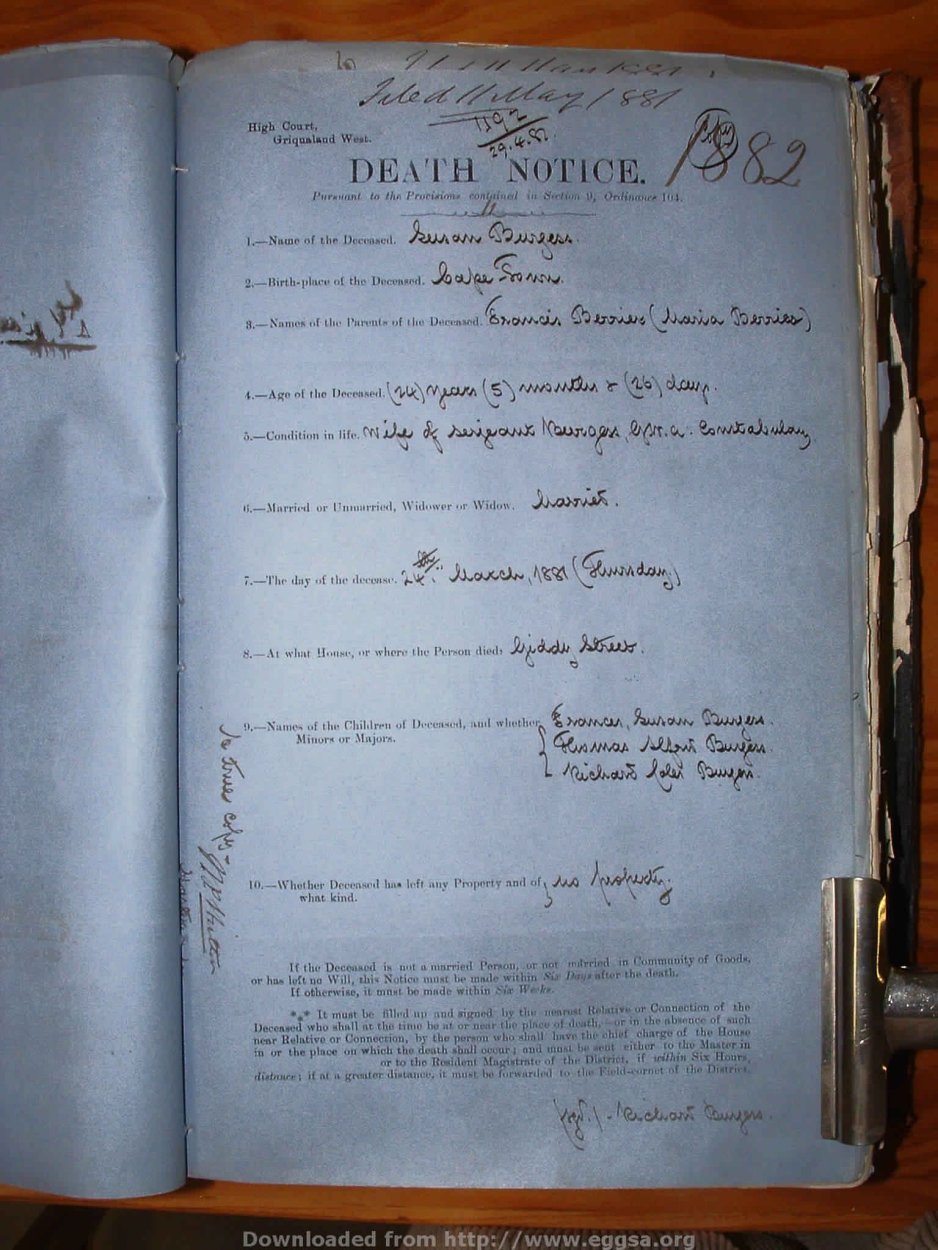 to
Filed 11 May 1881
1192
29.4.82
Copy
1882
High Court,
Griqualand West.
DEATH NOTICE.
Pursuant to the Provisions contained in Section 9, Ordinance 104.
1.—Name of the Deceased. Susan Burgess.
2.—Birth-place of the Deceased. Cape Town.
3.—Names of the Parents of the Deceased. Francis Berries (Maria Berries)
4.—Age of the Deceased. (24) years (5) months & (26) days.
5.—Condition in life. Wife of serjeant Burgess, G.W.a. Constabulary
6.—Married or Unmarried, Widower or Widow. Married.
7.—The day of the decease. 24th. March, 1881 (Thursday)
8.—At what House, or where the Person died; Giddy Street.
9.—Names of the Children of Deceased, and whether Frances, Susan Burgess.
Minors or Majors. Thomas Albert Burgess.
Richard Burgess.
10.—Whether Deceased has left any Property and of no property.
what kind.
If the Deceased is not a married Person, or not married in Community of Goods,
or has left no Will, this Notice must be made within Six Days after the death.
If otherwise, it must be made within Six Weeks.
*** It must be filled up and signed by the nearest Relative or Connection of the
Deceased who shall at the time be at or near the place of death,—or in the absence of such
near Relative or Connection, by the person who shall have the chief charge of the House
in or the place on which the death shall occur; and must be sent either to the Master in
or to the Resident Magistrate of the District, if within Six Hours,
distance; if at a greater distance, it must be forwarded to the Field-cornet of the District.
(sgd.) - Richard Burgess.
true copy -
Downloaded from http://www.eggsa.org